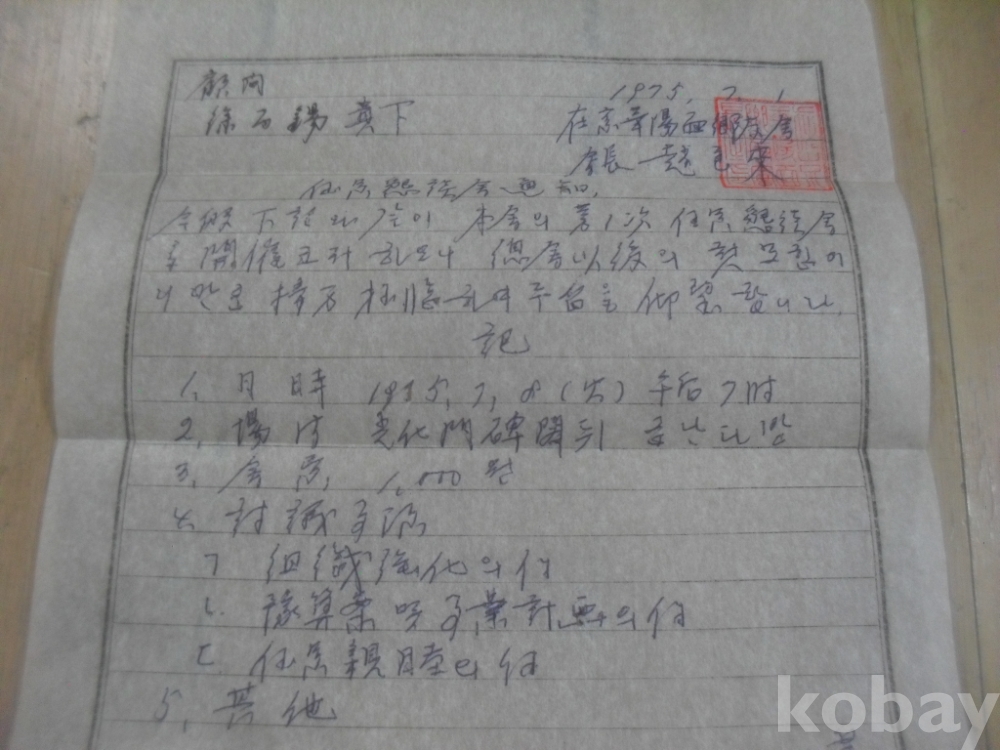 顧問
徐石錫 貴下
1975. 7. 1
在京華陽面鄕友會
會長 趙
任員懇談會通知.
今般 下記와 같이 本會의 第1次 任員懇談會
를 開催코저 하오니 總會以後의 첫모임이
니만큼 하여주심을 仰望합니다.
記
1. 日時 1975. 7. 8 (火) 午后 7時
2. 場所 光化門碑閣뒤 다방
3. 會費 1,000원
4. 討議事項
ㄱ 組織强化의 件
ㄴ. 豫算案 및 事業計画의 件
ㄷ. 任員親睦의 件
5. 其他
kobay